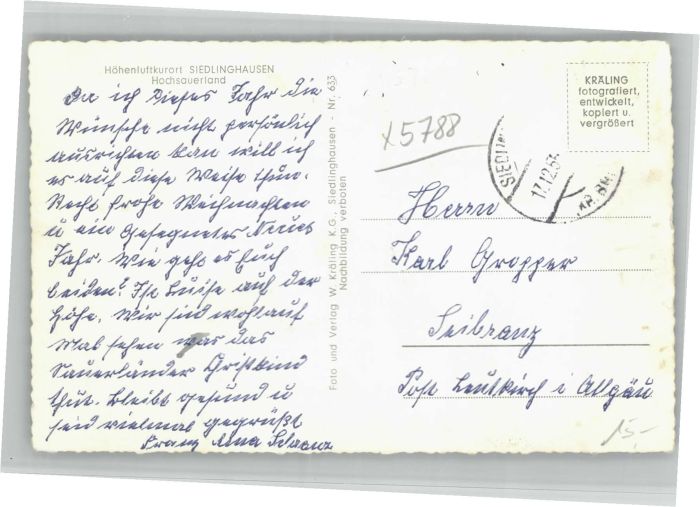 Höhenluftkurort SIEDLINGHAUSEN
Hochsauerland
Da ich dieses Jahr die
Wünsche nicht persönlich
ausrichten kan will ich
es auf diese Weise thun.
Recht frohe Weihnachten
u ein Gesegnetes Neues
Jahr. Wie geht es Euch
beiden? Ist Luise auf der
Höhe. Wir sind wohlauf
Mal sehen was das
Sauerländer Christkind
thut. Bleibt gesund u
seid vielmal gegrüßt
Franz
Foto und Verlag W. Kräling K.G., Siedlinghausen - Nr. 633
Nachbildung verboten
KRÄLING
fotografiert,
entwickelt,
kopiert u.
vergrößert
x5788
17.12.5
Herrn
Karl Gropper
Seibranz
Post Leutkirch i Allgäu
15,-